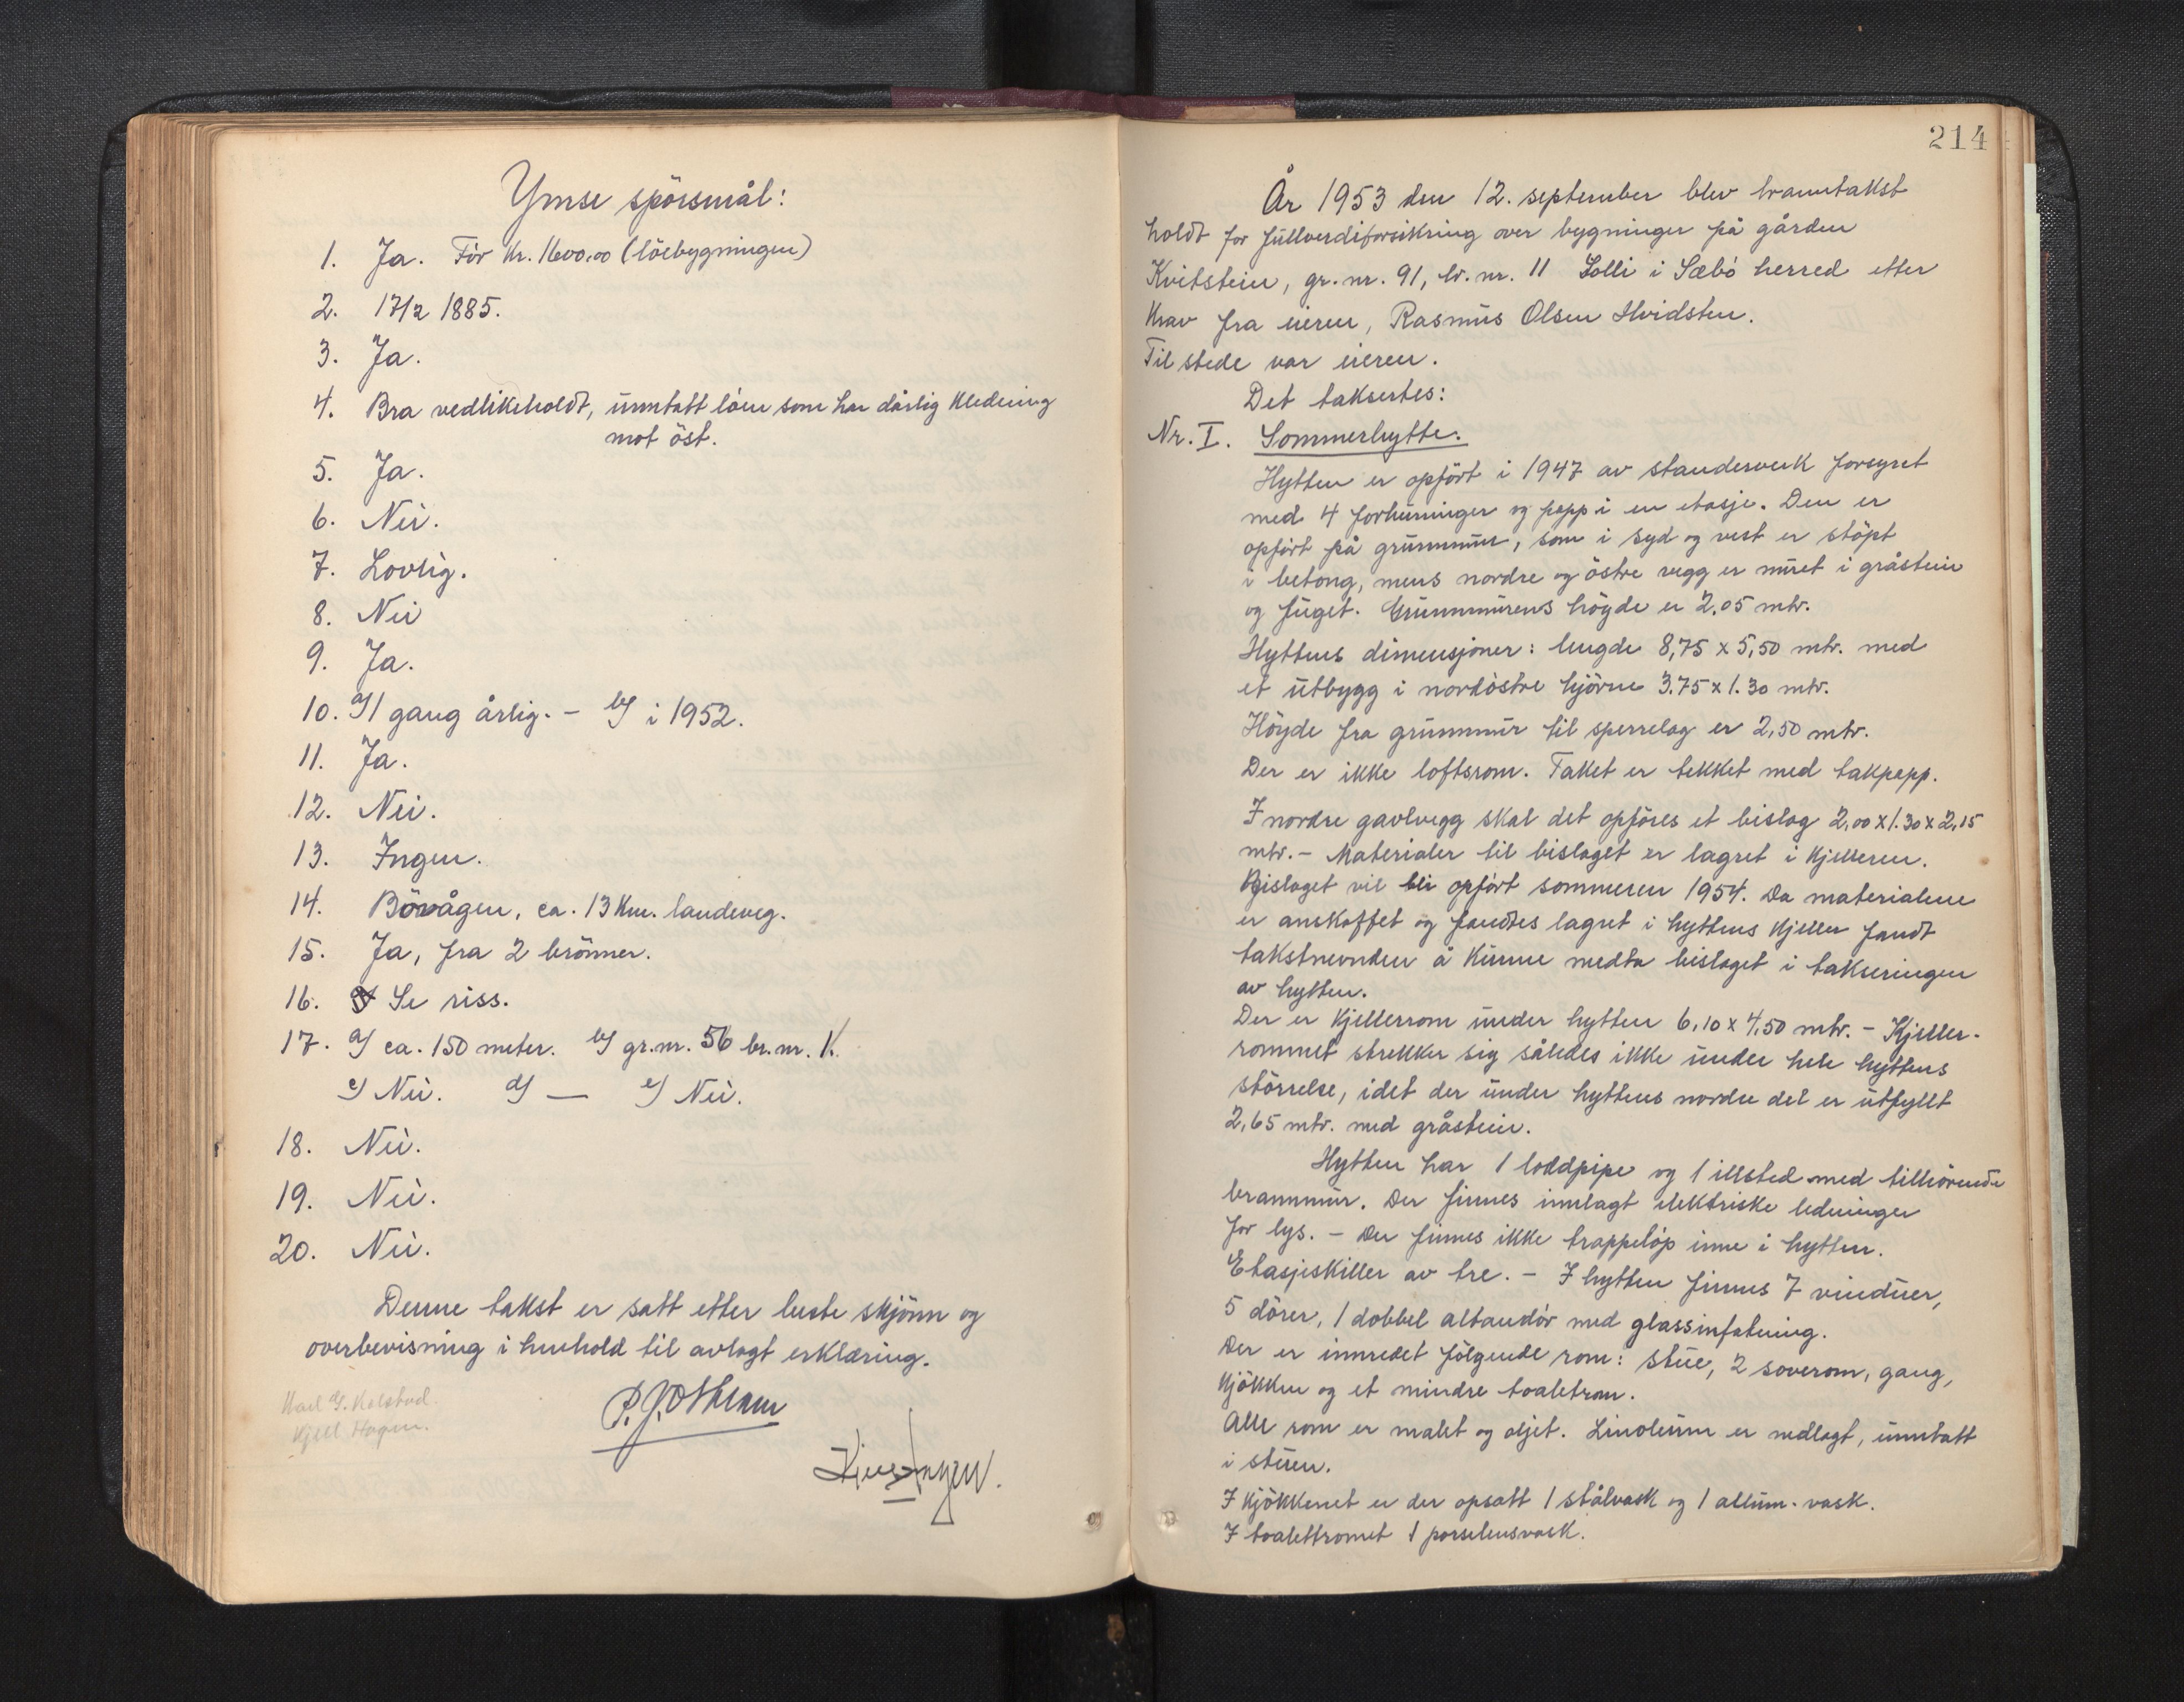 Ymse spörsmål:
1. Ja. För kr. 1600.00 (löebygningen)
2. 17/2 1885.
3. Ja.
4. Bra vedlikeholdt, unntatt löen som har dårlig kledning
mot öst.
5. Ja.
6. Nei.
7. Lovlig.
8. Nei
9. Ja.
10. a) 1 gang årlig. - b) i 1952.
11. Ja.
12. Nei.
13. Ingen.
14. Bövågen, ca. 13 km. landeveg.
15. Ja, fra 2 brönner.
16. Se riss.
17. a) ca. 150 meter. b) gr.nr. 56 br.nr. 1.
c) Nei. d) — e) Nei.
18. Nei.
19. Nei.
20. Nei.
Denne takst er satt etter beste skjönn og
overbevisning i henhold til avlagt erklæring.
Kjell Hagen.
214
År 1953 den 12. september blev branntakst
holdt for fullverdiforsikring over bygninger på gården
Kvitstein, gr.nr. 91, br.nr. 11 Solli i Sæbö herred etter
krav fra eieren, Rasmus Olsen Hvidsten.
Til stede var eieren.
Det taksertes:
Nr. I. Sommerhytte.
Hytten er opfört i 1947 av standerverk forsynet
med 4 forhuninger og papp i en etasje. Den er
opfört på grunnmur, som i syd og vest er stöpt
i betong, mens nordre og östre vegg er muret i gråstein
og fuget. Grunnmurens höyde er 2,05 mtr.
Hyttens dimensjoner: lengde 8,75 x 5,50 mtr. med
et utbygg i nordöstre hjörne 3.75 x 1.30 mtr.
Höyde fra grunnmur til sperrelag er 2,50 mtr.
Der er ikke loftsrom. Taket er tekket med takpapp.
I nordre gavlvegg skal det opföres et bislag 2,00 x 1.30 x 2,15
mtr. - Materialer til bislaget er lagret i kjelleren.
Bislaget vil bli opfört sommeren 1954. Da materialene
er anskaffet og fandtes lagret i hyttens kjeller fandt
takstnevnden å kunne medta bislaget i takseringen
av hytten.
Der er kjellerrom under hytten 6,10 x 4,50 mtr. - Kjeller-
rommet strekker sig således ikke under hele hyttens
störrelse, idet der under hyttens nordre del er utfyllt
2,65 mtr. med gråstein.
Hytten har 1 loddpipe og 1 illsted med tilhörende
brannmur. Der finnes innlagt elektriske ledninger
for lys. - Der finnes ikke trappelöp inne i hytten.
Etasjeskiller av tre. - I hytten finnes 7 vinduer,
5 dörer, 1 dobbel altandör med glassinfatning.
Der er innredet fölgende rom: stue, 2 soverom, gang,
kjökken og et mindre toaletrom.
Alle rom er malet og oljet. Linoleum er nedlagt, unntatt
i stuen.
I kjökkenet er der opsatt 1 stålvask og 1 allum. vask.
I toalettromet 1 porselensvask.